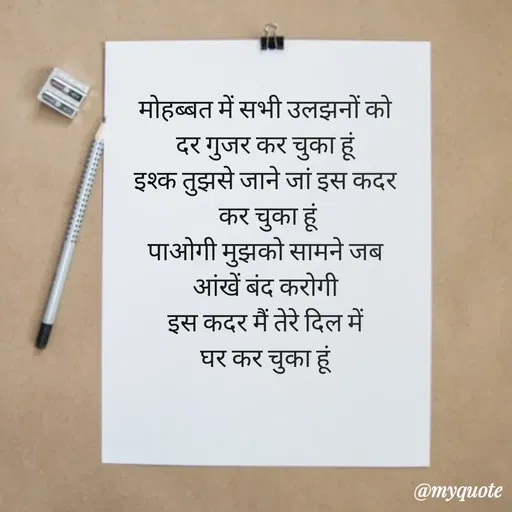 मोहब्बत में सभी उलझनों को
दर गुजर कर चुका हूं
इश्क तुझसे जाने जां इस कदर
कर चुका हूं
पाओगी मुझको सामने जब
आंखें बंद करोगी
इस कदर मैं तेरे दिल में
घर कर चुका हूं
@myquote